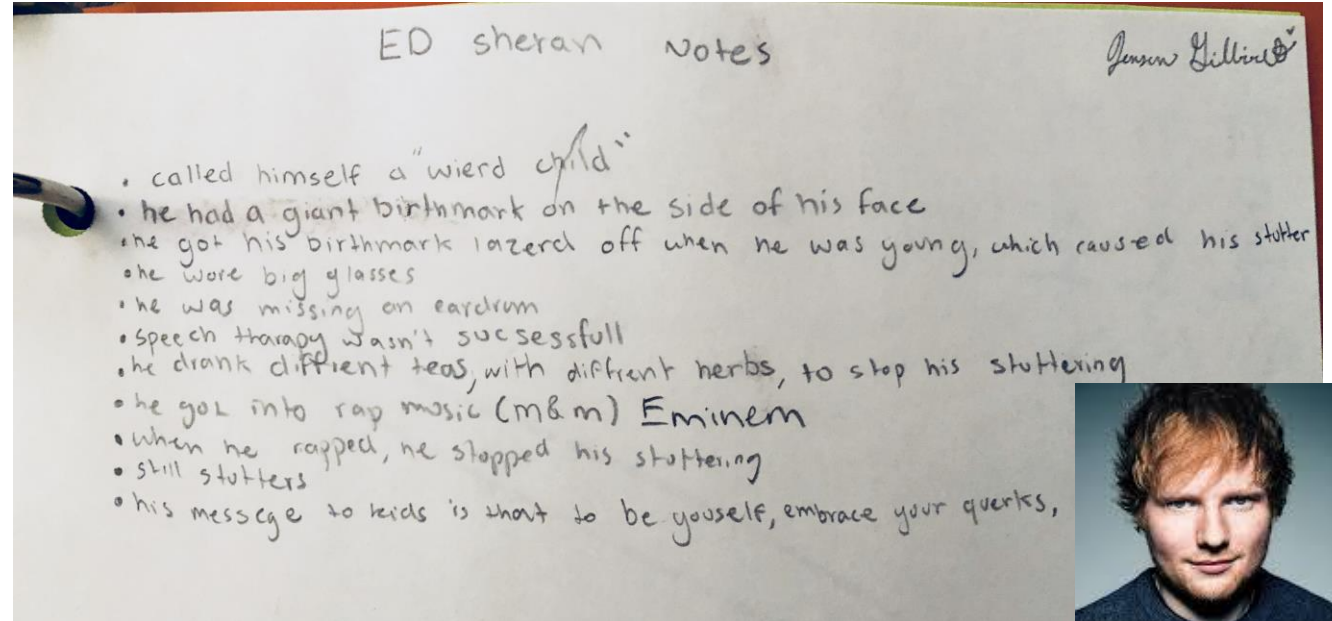 ED sheran Notes
Jensen
• called himself a "wierd child"
• he had a giant birthmark on the side of his face
• he got his birthmark lazerd off when he was young, which caused his stutter
• he wore big glasses
• he was missing an eardrum
• speech tharapy wasn't sucsessfull
• he drank diffrent teas, with diffrent herbs, to stop his stuttering
• he got into rap music (m&m) Eminem
• when he rapped, he stopped his stuttering
• still stutters
• his messege to kids is that to be youself, embrace your querks,